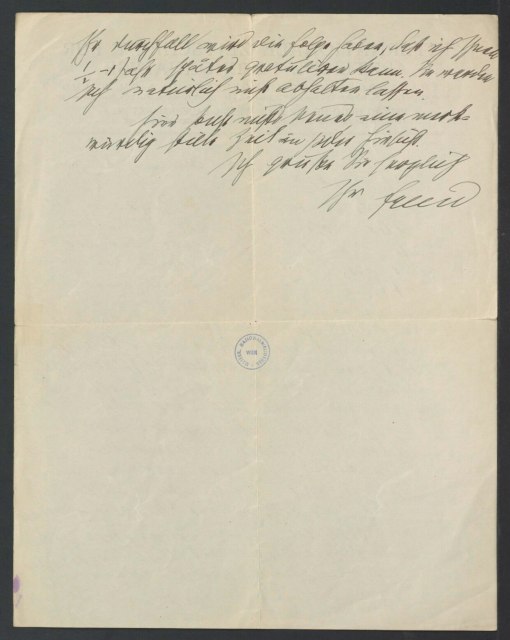 Ihr Durchfall wird die Folge haben, daß ich Ihnen
½–1 Jahr später gratuliren kann. Sie werden
sich natürlich nicht abhalten lassen.
Sonst nichts Neues eine merk-
würdig stille Zeit in jeder Hinsicht.
Ich grüße Sie herzlich
Ihr Freud
WIEN